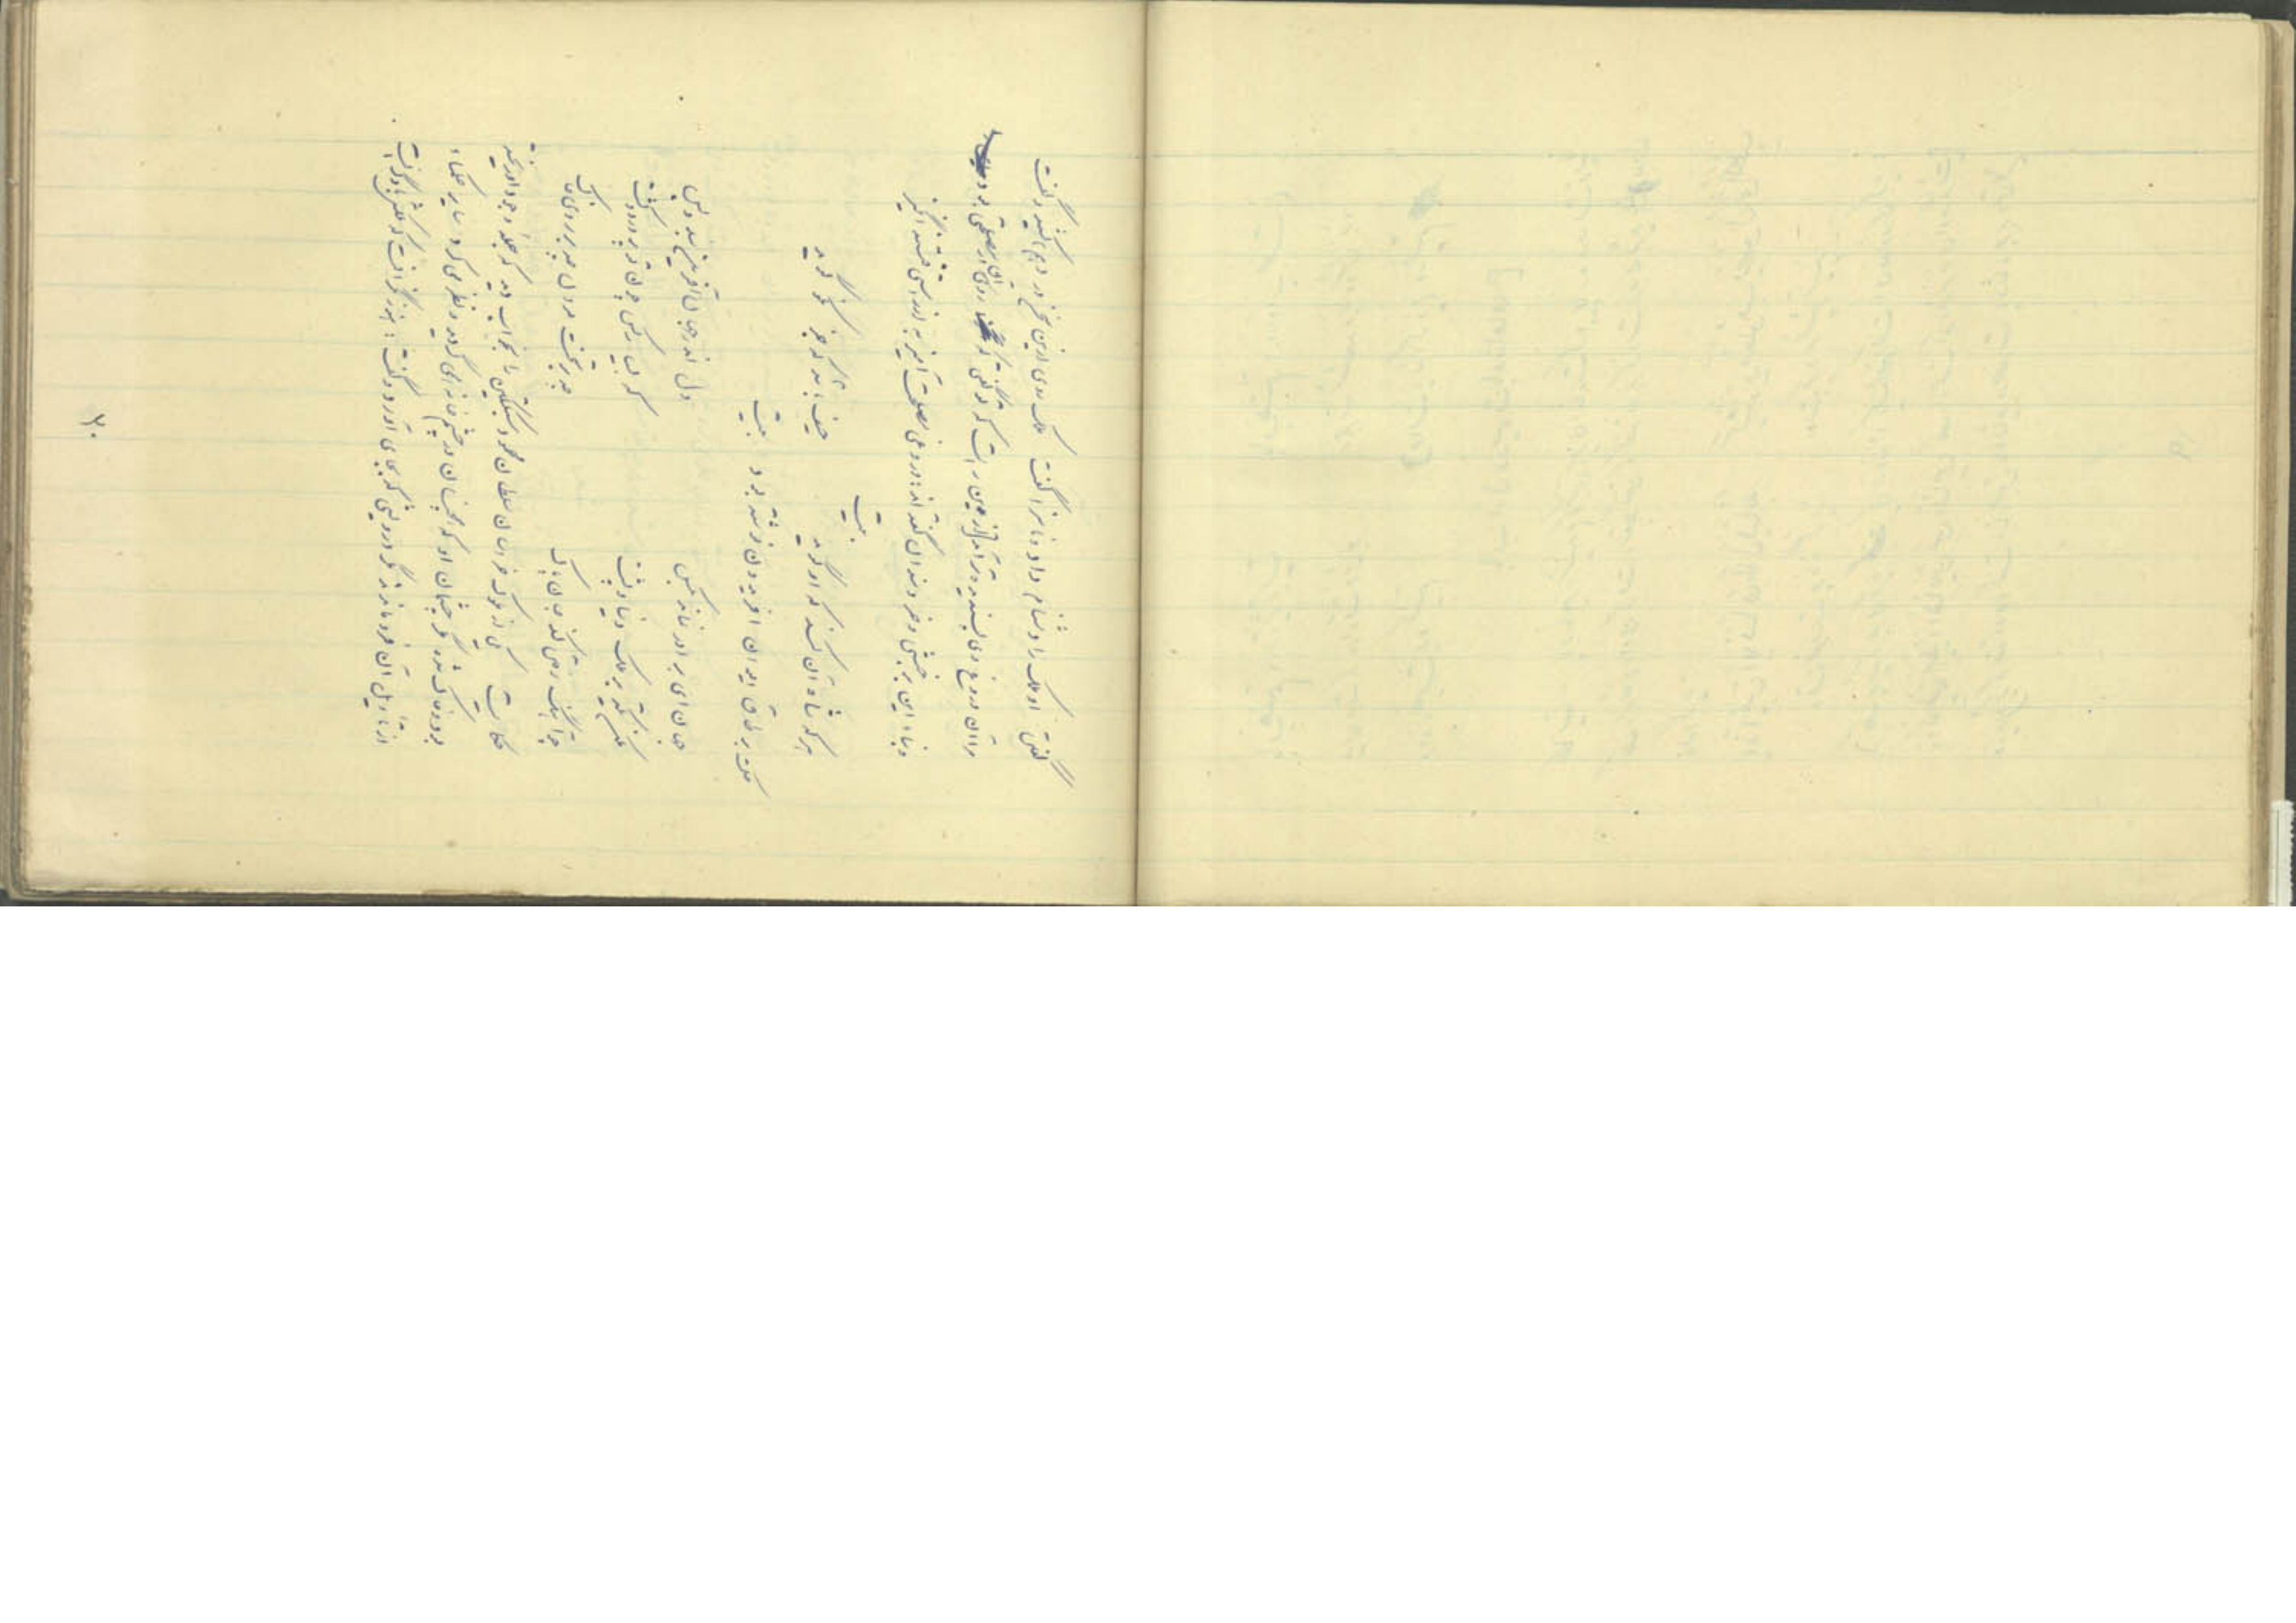 گفتن او ملک را دشنام داد و ناسزا گفت ملک روی ازین سخن در هم کشید و گفت
مرا آن دروغ وی پسندیده تر آمد ازین راست که تو گفتی که روی آن در مصلحتی بود و
بناء این بر خبثی و خردمندان گفته اند: دروغی مصلحت آمیز به از راستی فتنه انگیز
بیت
هر که شاه آن کند که او گوید   حیف باشد که جز نکو گوید
حکمت بر طاق ایوان افریدون نوشته بود   بیت
جهان ای برادر نماند بکس   دل اندر جهان آفرین بند و بس
مکن تکیه بر ملک دنیا و پشت   که بسیار کس چون تو پرورد و کشت
چو آهنگ رفتن کند جان پاک   چه بر تخت مردن چه بر روی خاک
حکایت   یکی از ملوک خراسان سلطان محمود سبکتگین را بخواب دید که جمله وجود او ریخته
بود و خاک شده مگر چشمان او که همچنان در چشم خانه همی گردید و نظر می کرد سایر حکماء
از تأویل آن فرو ماندند مگر درویشی که بجای آورد و گفت: هنوز نگرانست که ملکش با دگرانست
۲۰